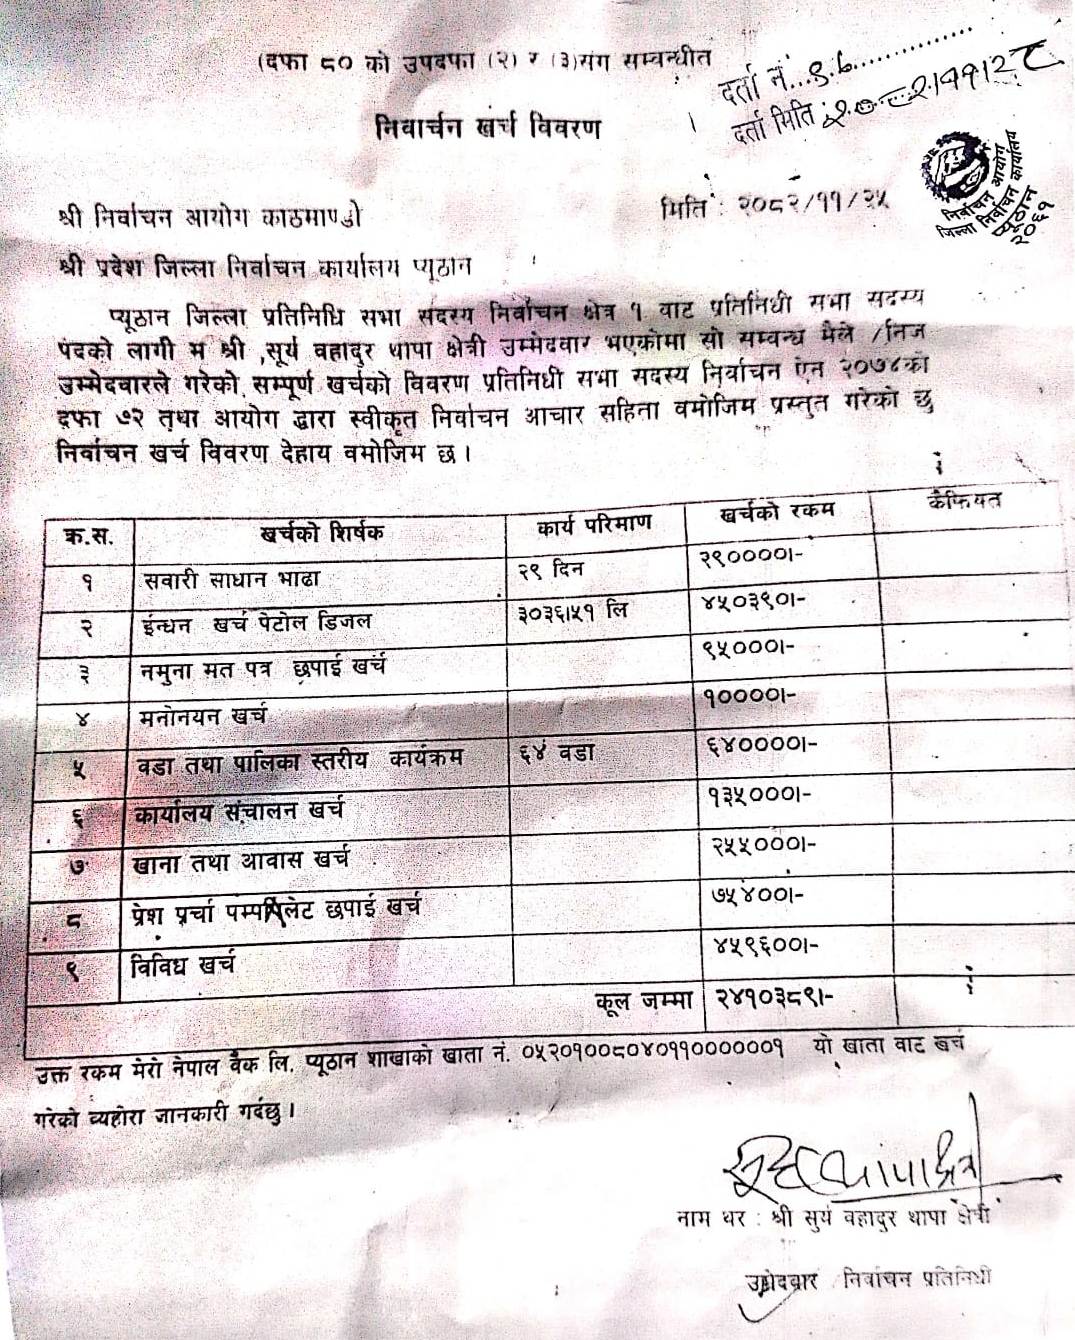 (दफा ८० को उपदफा (२) र (३)संग सम्वन्धीत
दर्ता नं...
दर्ता मिति :
निवार्चन खर्च विवरण
निर्वाचन आयोग
जिल्ला निर्वाचन कार्यालय
प्यूठान
२०६१
श्री निर्वाचन आयोग काठमाण्डो
मिति : २०८२/११/२५
श्री प्रदेश जिल्ला निर्वाचन कार्यालय प्यूठान
प्यूठान जिल्ला प्रतिनिधि सभा सदस्य निर्वाचन क्षेत्र १ वाट प्रतिनिधी सभा सदस्य
पदको लागी म श्री ,सूर्य वहादुर थापा क्षेत्री उम्मेदवार भएकोमा सो सम्वन्ध मैले /निज
उम्मेदवारले गरेको सम्पूर्ण खर्चको विवरण प्रतिनिधी सभा सदस्य निर्वाचन ऐन २०७४को
दफा ७२ तथा आयोग द्वारा स्वीकृत निर्वाचन आचार सहिता वमोजिम प्रस्तुत गरेको छु
निर्वाचन खर्च विवरण देहाय वमोजिम छ ।
क्र.स. खर्चको शिर्षक कार्य परिमाण खर्चको रकम कैफियत
१ सवारी साधान भाढा २९ दिन २९००००।-
२ इन्धन खर्च पेटोल डिजल ३०३६।५१ लि ४५०३९०।-
३ नमुना मत पत्र छपाई खर्च ९५०००।-
४ मनोनयन खर्च १००००।-
५ वडा तथा पालिका स्तरीय कार्यक्रम ६४ वडा ६४००००।-
६ कार्यालय संचालन खर्च १३५०००।-
७ खाना तथा आवास खर्च २५५०००।-
८ प्रेश प्रर्चा पम्पप्लेट छपाई खर्च ७५४००।-
९ विविध खर्च ४५९६००।-
कूल जम्मा २४१०३८९।-
उक्त रकम मेरो नेपाल वैक लि. प्यूठान शाखाको खाता नं. ०५२०१००८०४०११०००००००१ यो खाता वाट खर्च
गरेको व्यहोरा जानकारी गर्दछु ।
नाम थर : श्री सुर्य वहादुर थापा क्षेत्री
उम्मेदवार निर्वाचन प्रतिनिधी